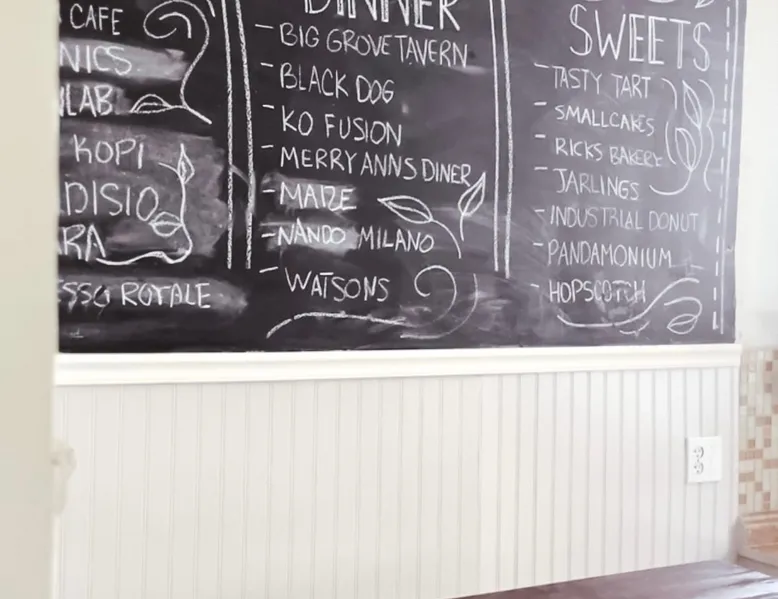 CAFE
NICS
LAB
KOPI
DISIO
RA
ESSO ROYALE
DINNER
- BIG GROVE TAVERN
- BLACK DOG
- KO FUSION
- MERRY ANNS DINER
- MAIZE
- NANDO MILANO
- WATSONS
SWEETS
- TASTY TART
- SMALLCAKES
- RICKS BAKERY
- JARLINGS
- INDUSTRIAL DONUT
- PANDAMONIUM
- HOPSCOTCH